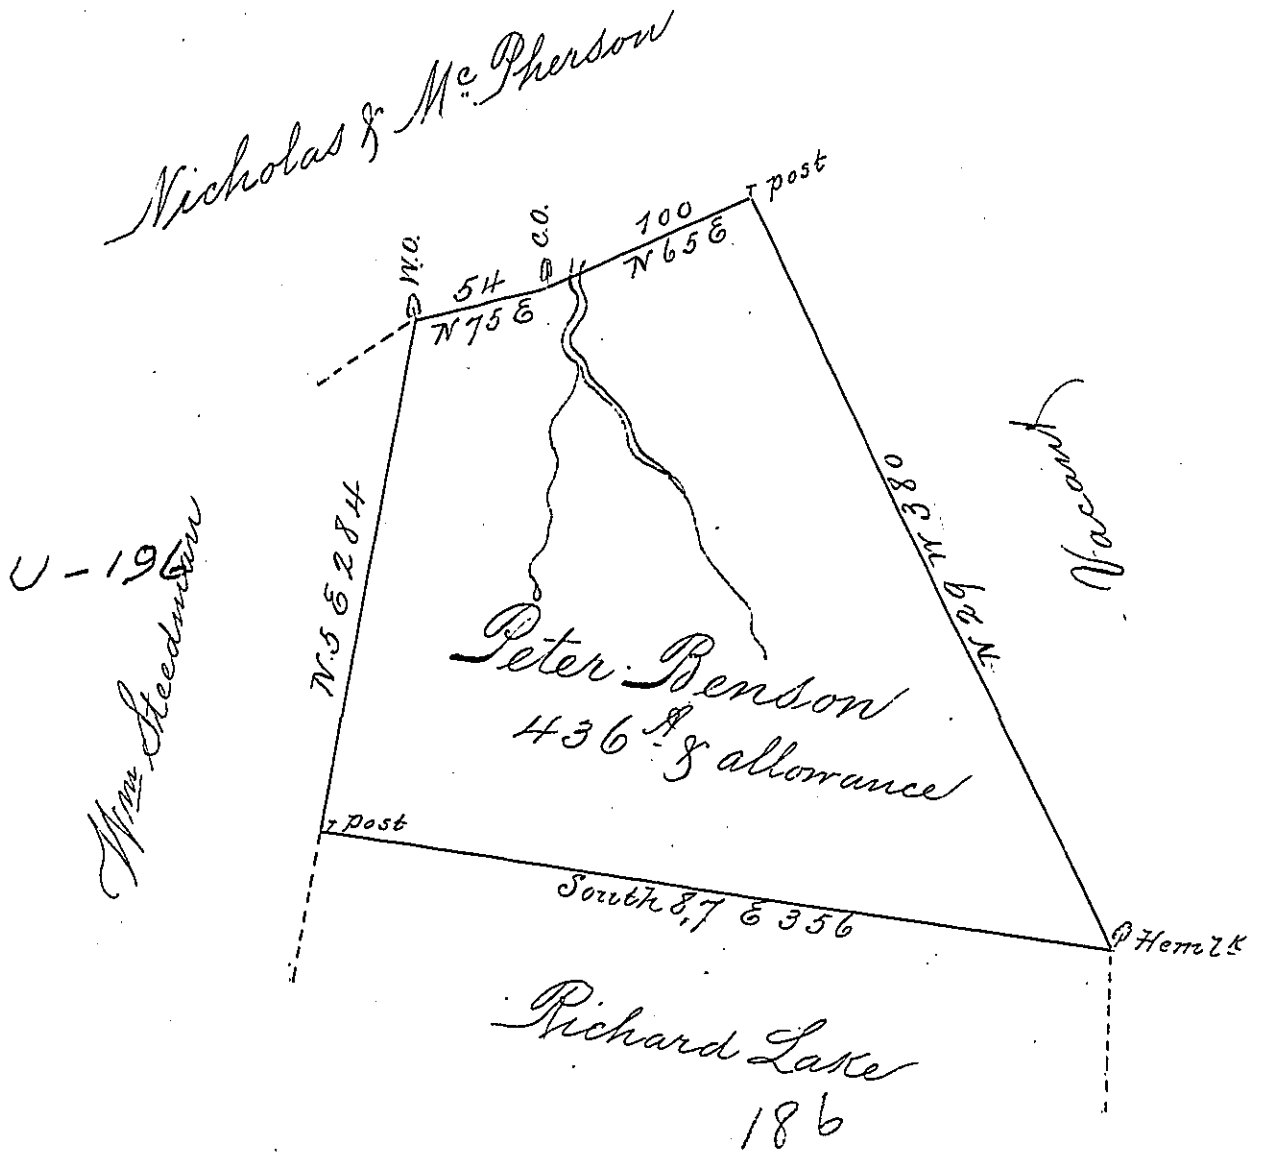 Nicholas & Mc. Pherson
post
100
N 65 E
C.O.
W.O.
54
N 75 E
N 29 W 380
Vacant
N. 5 E 284
U - 196
Wm Steedman
Peter Benson
436 A. & allowance
post
South 87 E 356
Heml k
Richard Lake
186